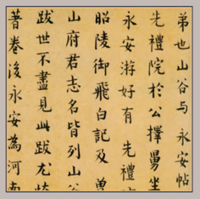 弟也山谷与永安帖
先禮院於公擇舅坐
永安游好有先禮
昭陵御飛白記及曾
山府君志名皆列山谷
跋世不盡見此跋尤恢
著卷後永安為河南